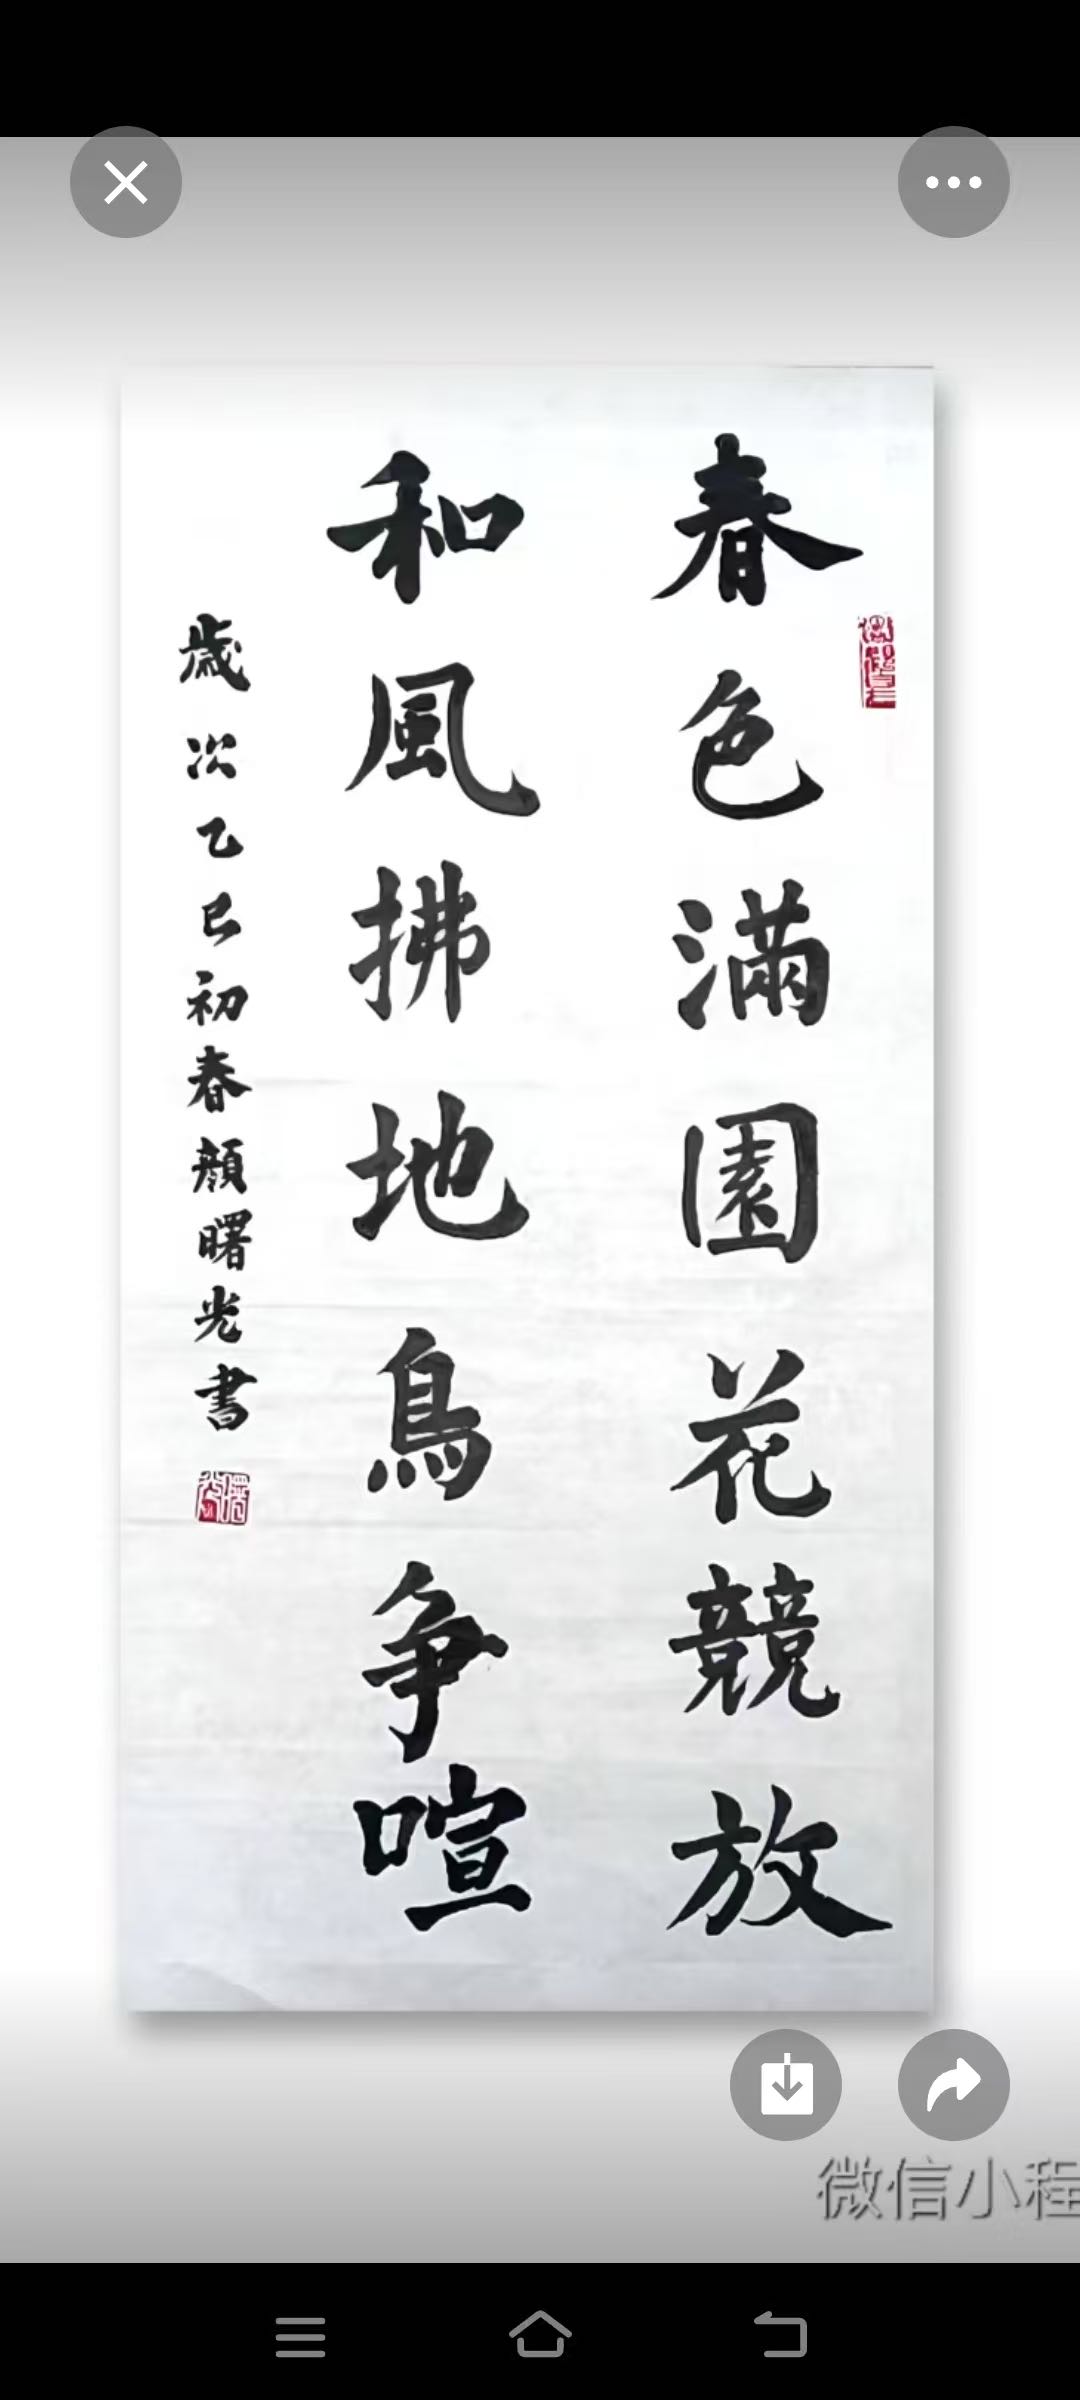 春色滿園花競放
和風拂地鳥争喧
歳次乙巳初春顔曙光書
曙光
微信小程